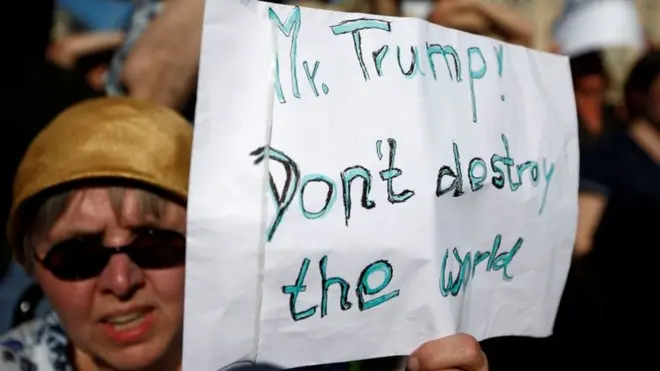 Mr. Trump!
Don't destroy
the world